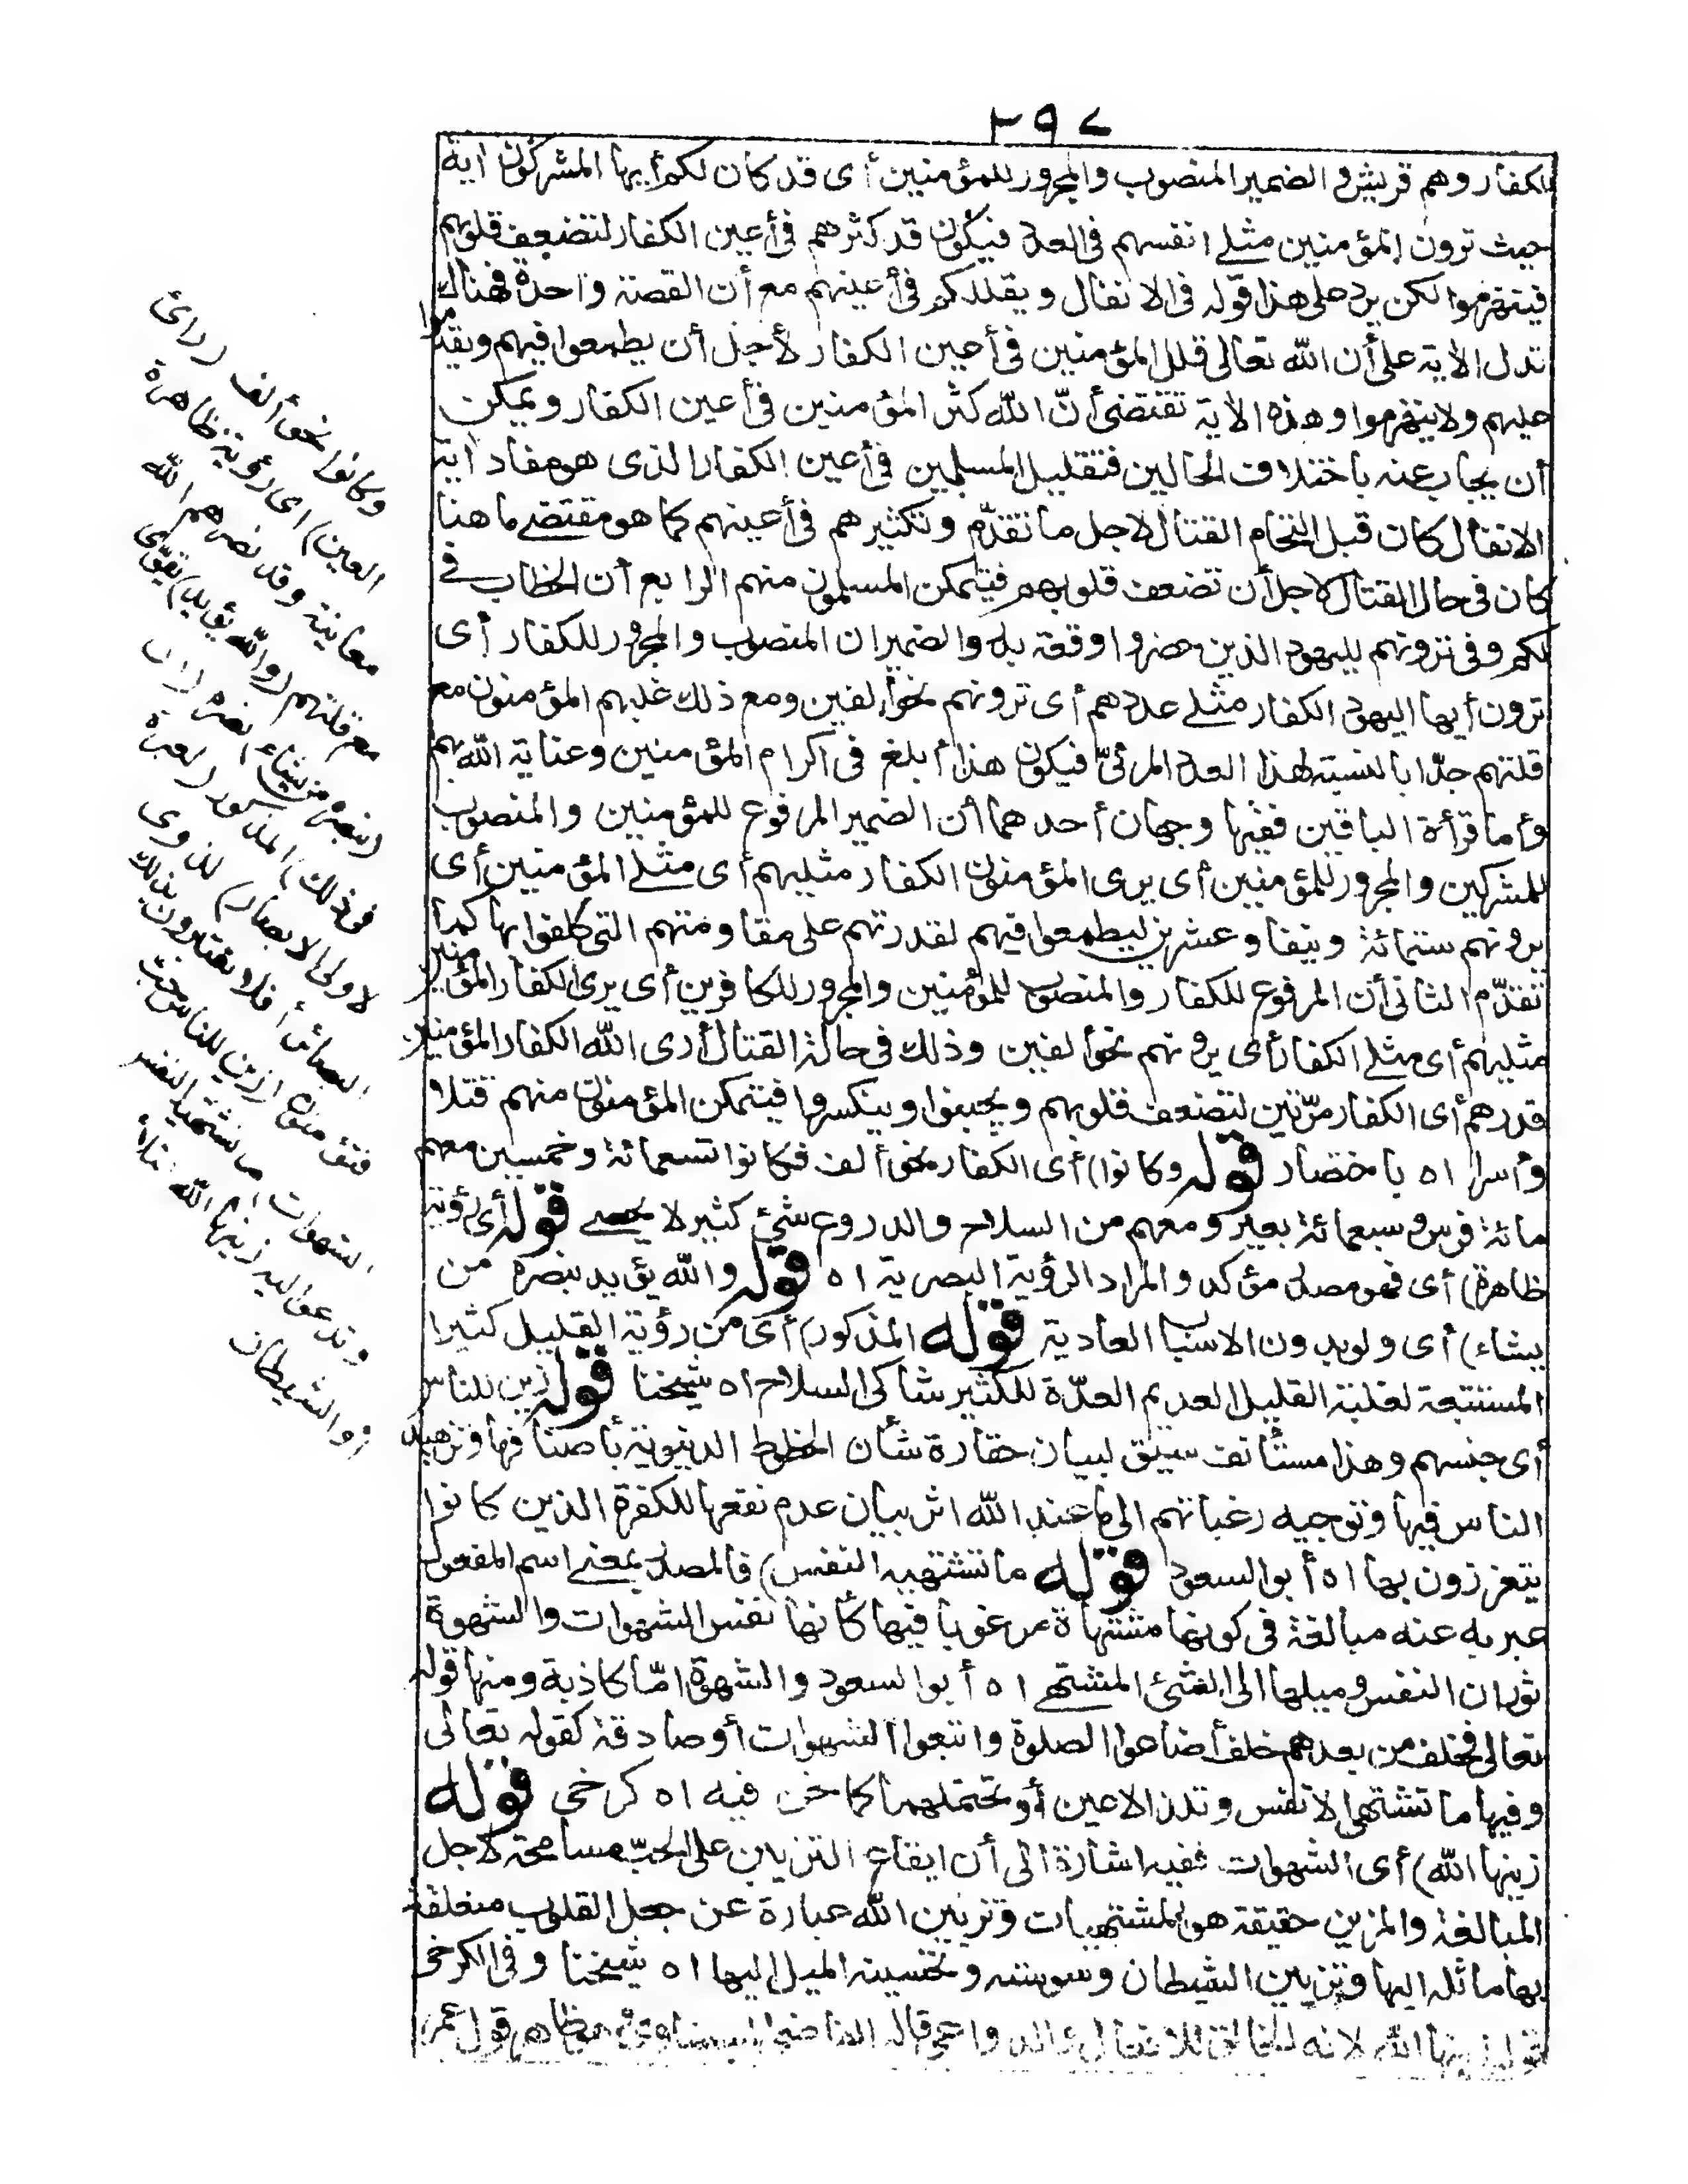 ٢٩٧
الكفار وهم قريش والضمير المنصوب والمجرور للمؤمنين أى قد كان لكم أيها المشركون اية
حيث ترون المؤمنين مثلى انفسهم فى العدد فيكون قد كثرهم فى أعين الكفار لتضعف قلوبهم
فينهزموا لكن يرد على هذا قوله فى الانفال ويقللكم فى أعينهم مع أن القصة واحدة فهناك
تدل الاية على أن الله تعالى قلل المؤمنين فى أعين الكفار لأجل أن يطمعوا فيهم ويقدموا
عليهم ولا ينهزموا وهذه الاية تقتضى أنّ الله كثر المؤمنين فى أعين الكفار ويمكن
أن يجاب عنه باختلاف الحالين فتقليل المسلمين فى أعين الكفار الذى هو مفاد اية
الانفال كان قبل التحام القتال لاجل ما تقدّم وتكثيرهم فى أعينهم كما هو مقتضى ما هنا
كان فى حال القتال لاجل أن تضعف قلوبهم فيتمكن المسلمون منهم الرابع أن الخطاب فى
لكم وفى ترونهم لليهود الذين حضروا وقعة بدر والضميران المنصوب والمجرور للكفار أى
ترون أيها اليهود الكفار مثلى عددهم أى ترونهم نحو ألفين ومع ذلك غلبهم المؤمنون مع
قلتهم جدّا بالنسبة لهذا العدد المرئىّ فيكون هذا أبلغ فى اكرام المؤمنين وعناية الله بهم
وأما قرأة الباقين ففيها وجهان أحدهما أن الضمير المرفوع للمؤمنين والمنصوب
للمشركين والمجرور للمؤمنين أى يرى المؤمنون الكفار مثليهم أى مثلى المؤمنين أى
يرونهم ستمائة ونيفا وعشرين ليطمعوا فيهم لقدرتهم على مقاومتهم التى كلفوا بها كما
تقدّم الثانى أن المرفوع للكفار والمنصوب للمؤمنين والمجرور للكافرين أى يرى الكفار المؤمنين
مثليهم أى مثلى الكفار أى يرونهم نحو ألفين وذلك فى حالة القتال أرى الله الكفار المؤمنين
قدرهم أى الكفار مرّتين لتضعف قلوبهم ويجبنوا وينكسروا فيتمكن المؤمنون منهم قتلا
وأسرا اه باختصار قوله وكانوا) أى الكفار نحو ألف فكانوا تسعمائة وخمسين معهم
مائة فرس وسبعمائة بعير ومعهم من السلاح والدروع شئ كثير لا يحصى قوله أى رؤية
ظاهرة) أى فهو مصدر مؤكد والمراد الرؤية البصرية اه قوله والله يؤيد بنصره من
يشاء) أى ولو بدون الاسباب العادية قوله المذكور) أى من رؤية القليل كثيرا
المستتبعة لغلبة القليل العديم العدّة للكثير شاكى السلاح اه شيخنا قوله زين للناس
أى جنسهم وهذا مستأنف سيق لبيان حقارة شأن الحظوظ الدنيوية بأصنافها وتزهيد
الناس فيها وتوجيه رغباتهم الى ما عند الله اثر بيان عدم نفعها للكفرة الذين كانوا
يتعززون بها اه أبو السعود قوله ما تشتهيه النفس) فالمصدر بمعنى اسم المفعول
عبر به عنه مبالغة فى كونها مشتهاة مرغوبا فيها كأنها نفس الشهوات والشهوة
ثوران النفس وميلها الى الشئ المشتهى اه أبو السعود والشهوة امّا كاذبة ومنها قوله
تعالى فخلف من بعدهم خلف أضاعوا الصلوة واتبعوا الشهوات أو صادقة كقوله تعالى
وفيها ما تشتهى الانفس وتلذ الاعين أو تحتملهما كما نحن فيه اه كرخى قوله
زينها الله) أى الشهوات ففيه اشارة الى أن ايقاع التزيين على الحبّ مسامحة لاجل
المبالغة والمزين حقيقة هو المشتهيات وتزيين الله عبارة عن جعل القلوب متعلقة
بها مائلة اليها وتزيين الشيطان وسوسته وتحسينه الميل اليها اه شيخنا وفى الكرخى
قوله زينها الله لانه الخالق للافعال والدواعى قاله القاضى البيضاوى وهو ظاهر قول عمر
وكانوا نحو ألف (رأى
العين) اى رؤية ظاهرة
معاينة وقد نصرهم الله
مع قلتهم (والله يؤيد) يقوّى
(بنصره من يشاء) نصره (ان
فى ذلك) المذكور (لعبرة
لاولى الابصار) لذوى
البصائر أفلا تعتبرون بذلك
فتؤمنون (زين للناس حب
الشهوات) ما تشتهيه النفس
وتدعو اليه زينها الله ابتلاء
أو الشيطان